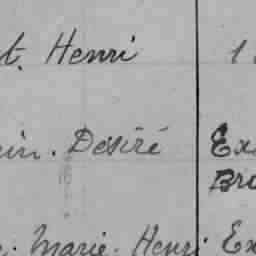 t. Henri 1
in. Désiré Ex
Bro
. Marie. Henri Ex